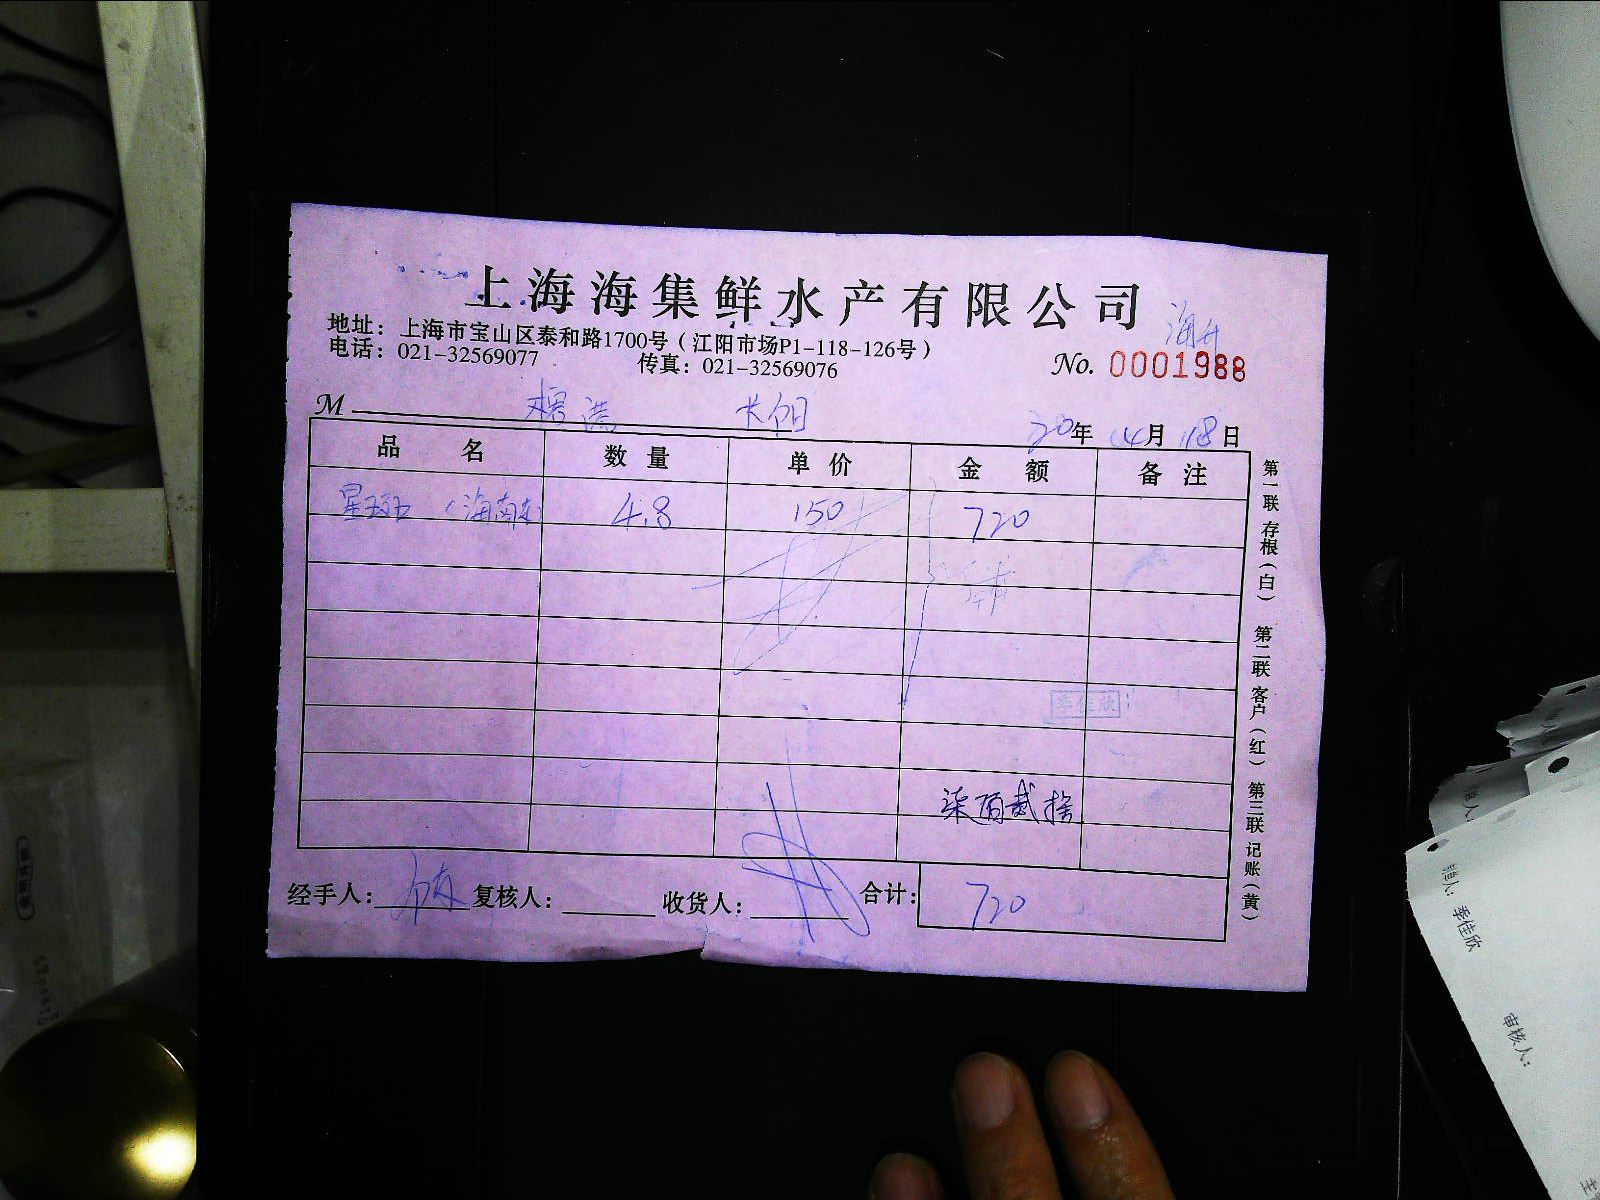 上海海集鲜水产有限公司
地址：上海市宝山区泰和路1700号（江阳市场P1-118-126号）
电话：021-32569077 传真：021-32569076
No. 0001988
M
20年 4月 18日
品名 数量 单价 金额 备注
星斑（海南 4.8 150 720
季佳欣
柒佰贰拾
经手人： 复核人： 收货人： 合计： 720
第一联 存根（白） 第二联 客户（红） 第三联 记账（黄）
季佳欣
审核人：